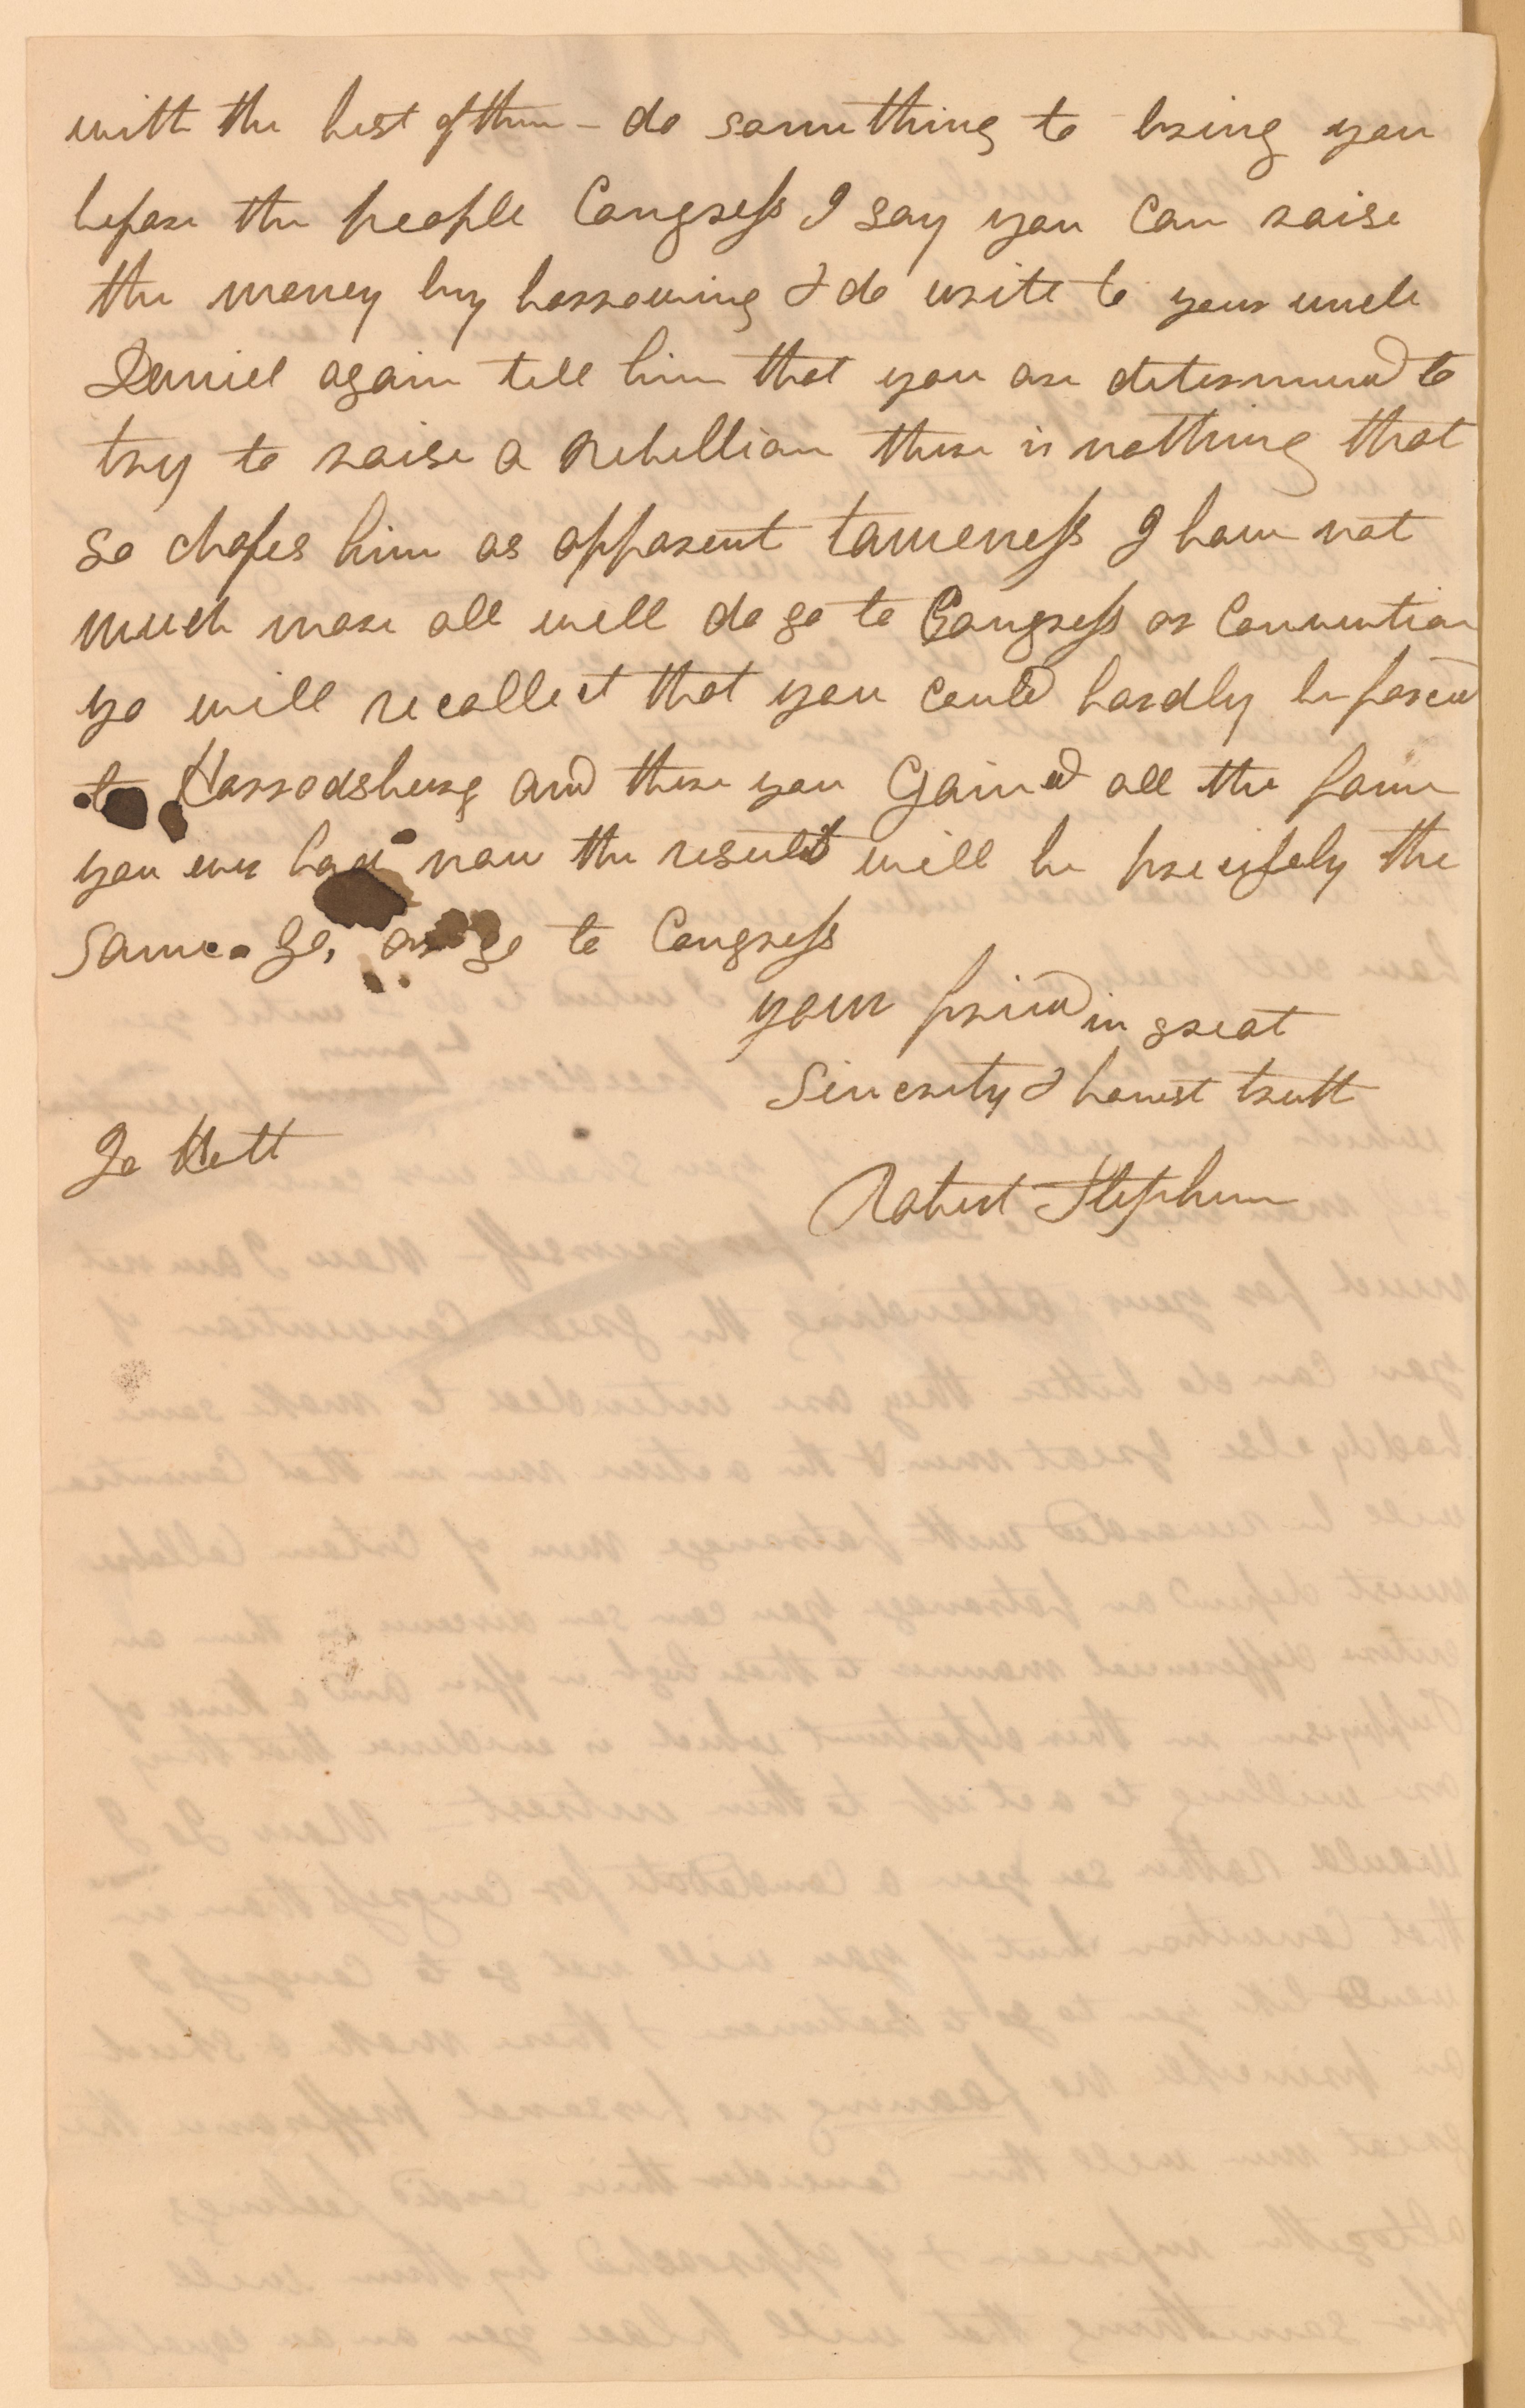 with the best of them - do something to bring you
before the people Congress I say you can raise
the money by borrowing & do write to your uncle
Daniel again tell him that you are determined to
try to raise a Rebellion there is nothing that
so chafes him as apparent tameness I have not
much more all will do go to Congress or Convention
yo will recollect that you could hardly be forced
to Harrodsburg and there you Gained all the fame
you ever had now the result will be precisely the
same. Go, go to Congress
your friend in great
Sincerity & honest truth
Jo Holt
Robert Stephens